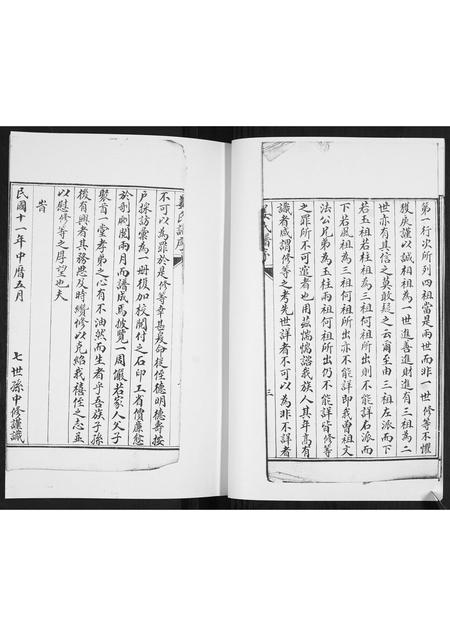 第一行次所列四祖當是兩世而非一世修等不懼
獲戾謹以誠相祖為一世進善進財進有三祖為二
世亦有其信之莫敢疑之云爾至由三祖左派而下
若玉祖若柱祖為三祖何祖所出則不能詳右派而
下若鳳祖為三祖何祖所出亦不能詳即我曾祖文
法公兄弟為玉柱兩祖何祖所出仍不能詳皆修等
之罪所不可逭者也用茲惴惴諮我族人其年高有
識者咸謂修等之考先世詳者不可以為非不詳者
三
不可以為罪於是修等幸甚爰命從侄德明德壽按
戶採訪彙為一冊復加校閱付之石印工省價廉愈
於剞劂閱兩月而譜成焉披覽一周儼若家人父子
聚首一堂孝弟之心有不油然而生者乎吾族子孫
後有興者其務思及時續修以克紹我禧侄之志並
以慰修等之厚望也夫
旹
民國十一年中曆五月
七世孫中修謹識